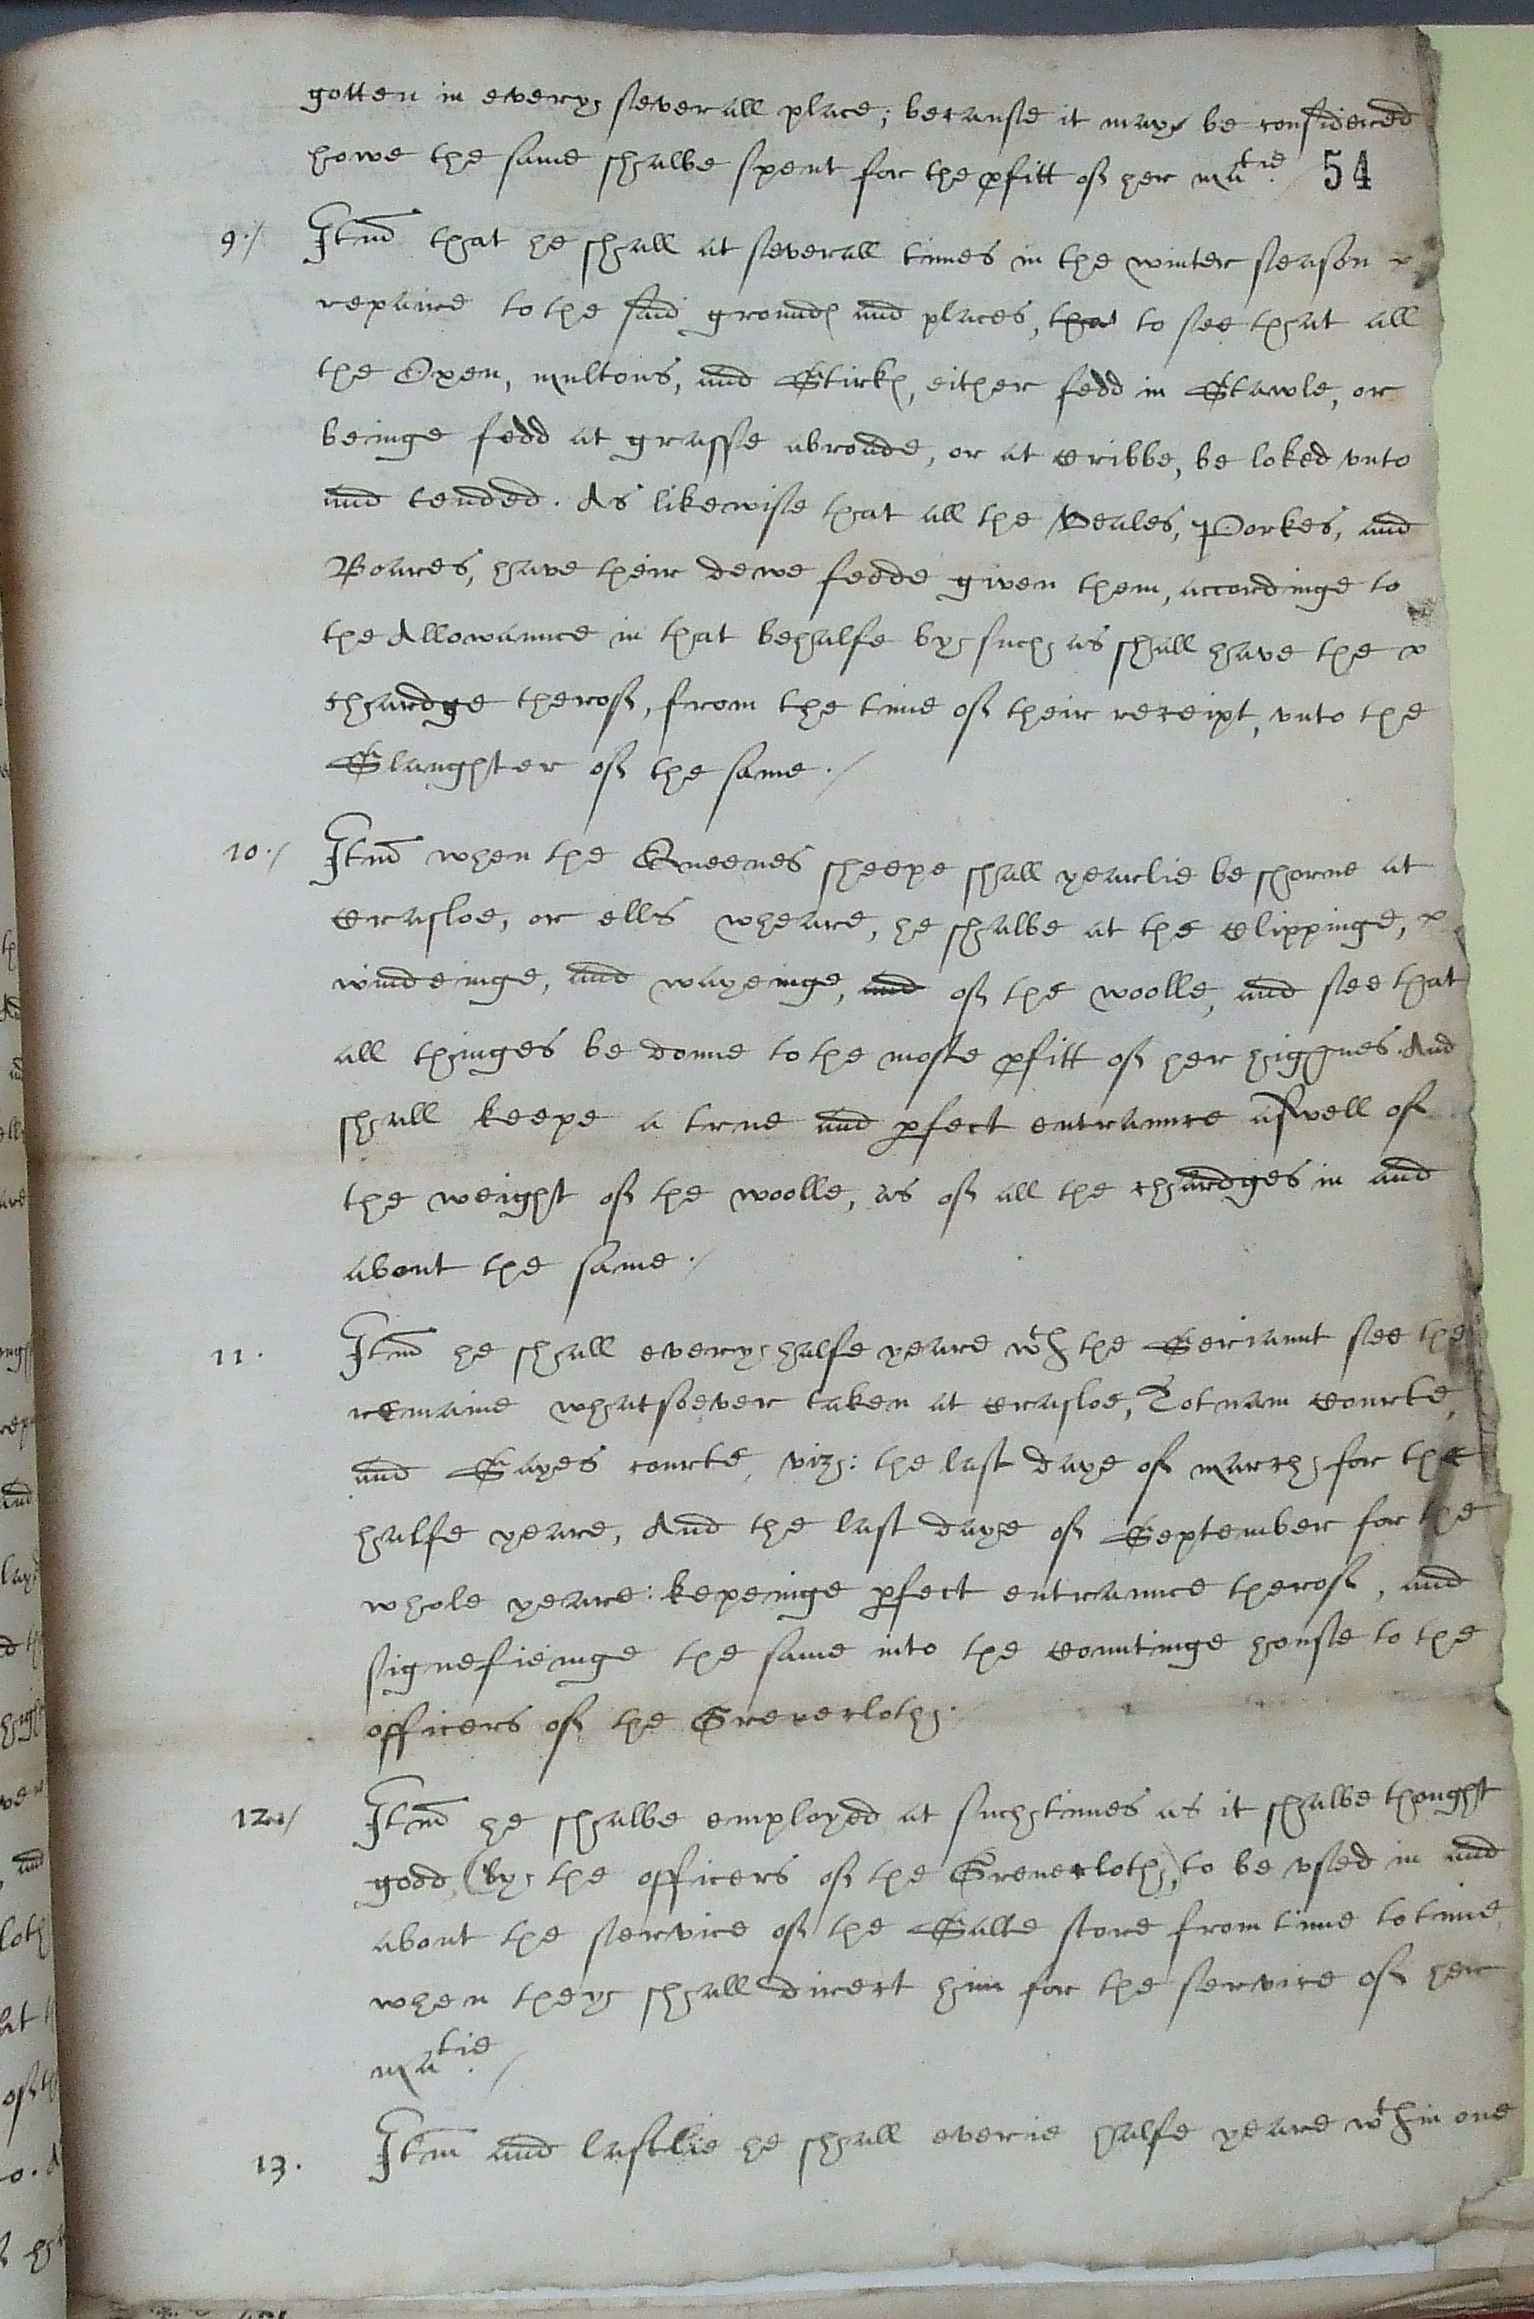 gotten in every severall place; because it maye be considered
howe the same shalbe spent for the pfitt of her Matie 54
9./ Itm that he shall at severall times in the winter season
repaire to the said groundes and places, that to see that all
the Oxen, multons, and Stirkes, either fedd in Stawle, or
beinge fedd at grasse abroade, or at Cribbe, be loked vnto
and tended. As likewise that all the Veales, Porkes, and
Boares, have their dewe feede given them, accordinge to
the Allowaunce in that behalfe by such as shall have the
Chardge therof, from the time of their receipt, vnto the
Slaughter of the same./
10./ Itm when the Queenes sheepe shall yearlie be shorne at
Crasloe, or ells wheare, he shalbe at the Clippinge,
windeinge, and wayeinge, and of the woolle, and see that
all thinges be donne to the moste pfitt of her highnes. And
shall keepe a true and pfect entraunce aswell of
the weight of the woolle, as of all the chardges in and
about the same./
11. Itm he shall every halfe yeare wth the Seriaunt see the
remaine whatsoever taken at Crasloe, Totnam Courte,
and Sayes courte, viz: the last daye of March for the
halfe yeare, And the last daye of September for the
whole yeare: kepeinge pfect entraunce therof, and
signefieinge the same into the Countinge house to the
officers of the Grenecloth./
12./ Itm he shalbe employed at such times as it shalbe thought
good, (by the officers of the Grenecloth,) to be vsed in and
about the service of the Salte store from time to time
when they shall direct him for the service of her
Matie./
13. Itm and lastlie he shall everie halfe yeare wthin one